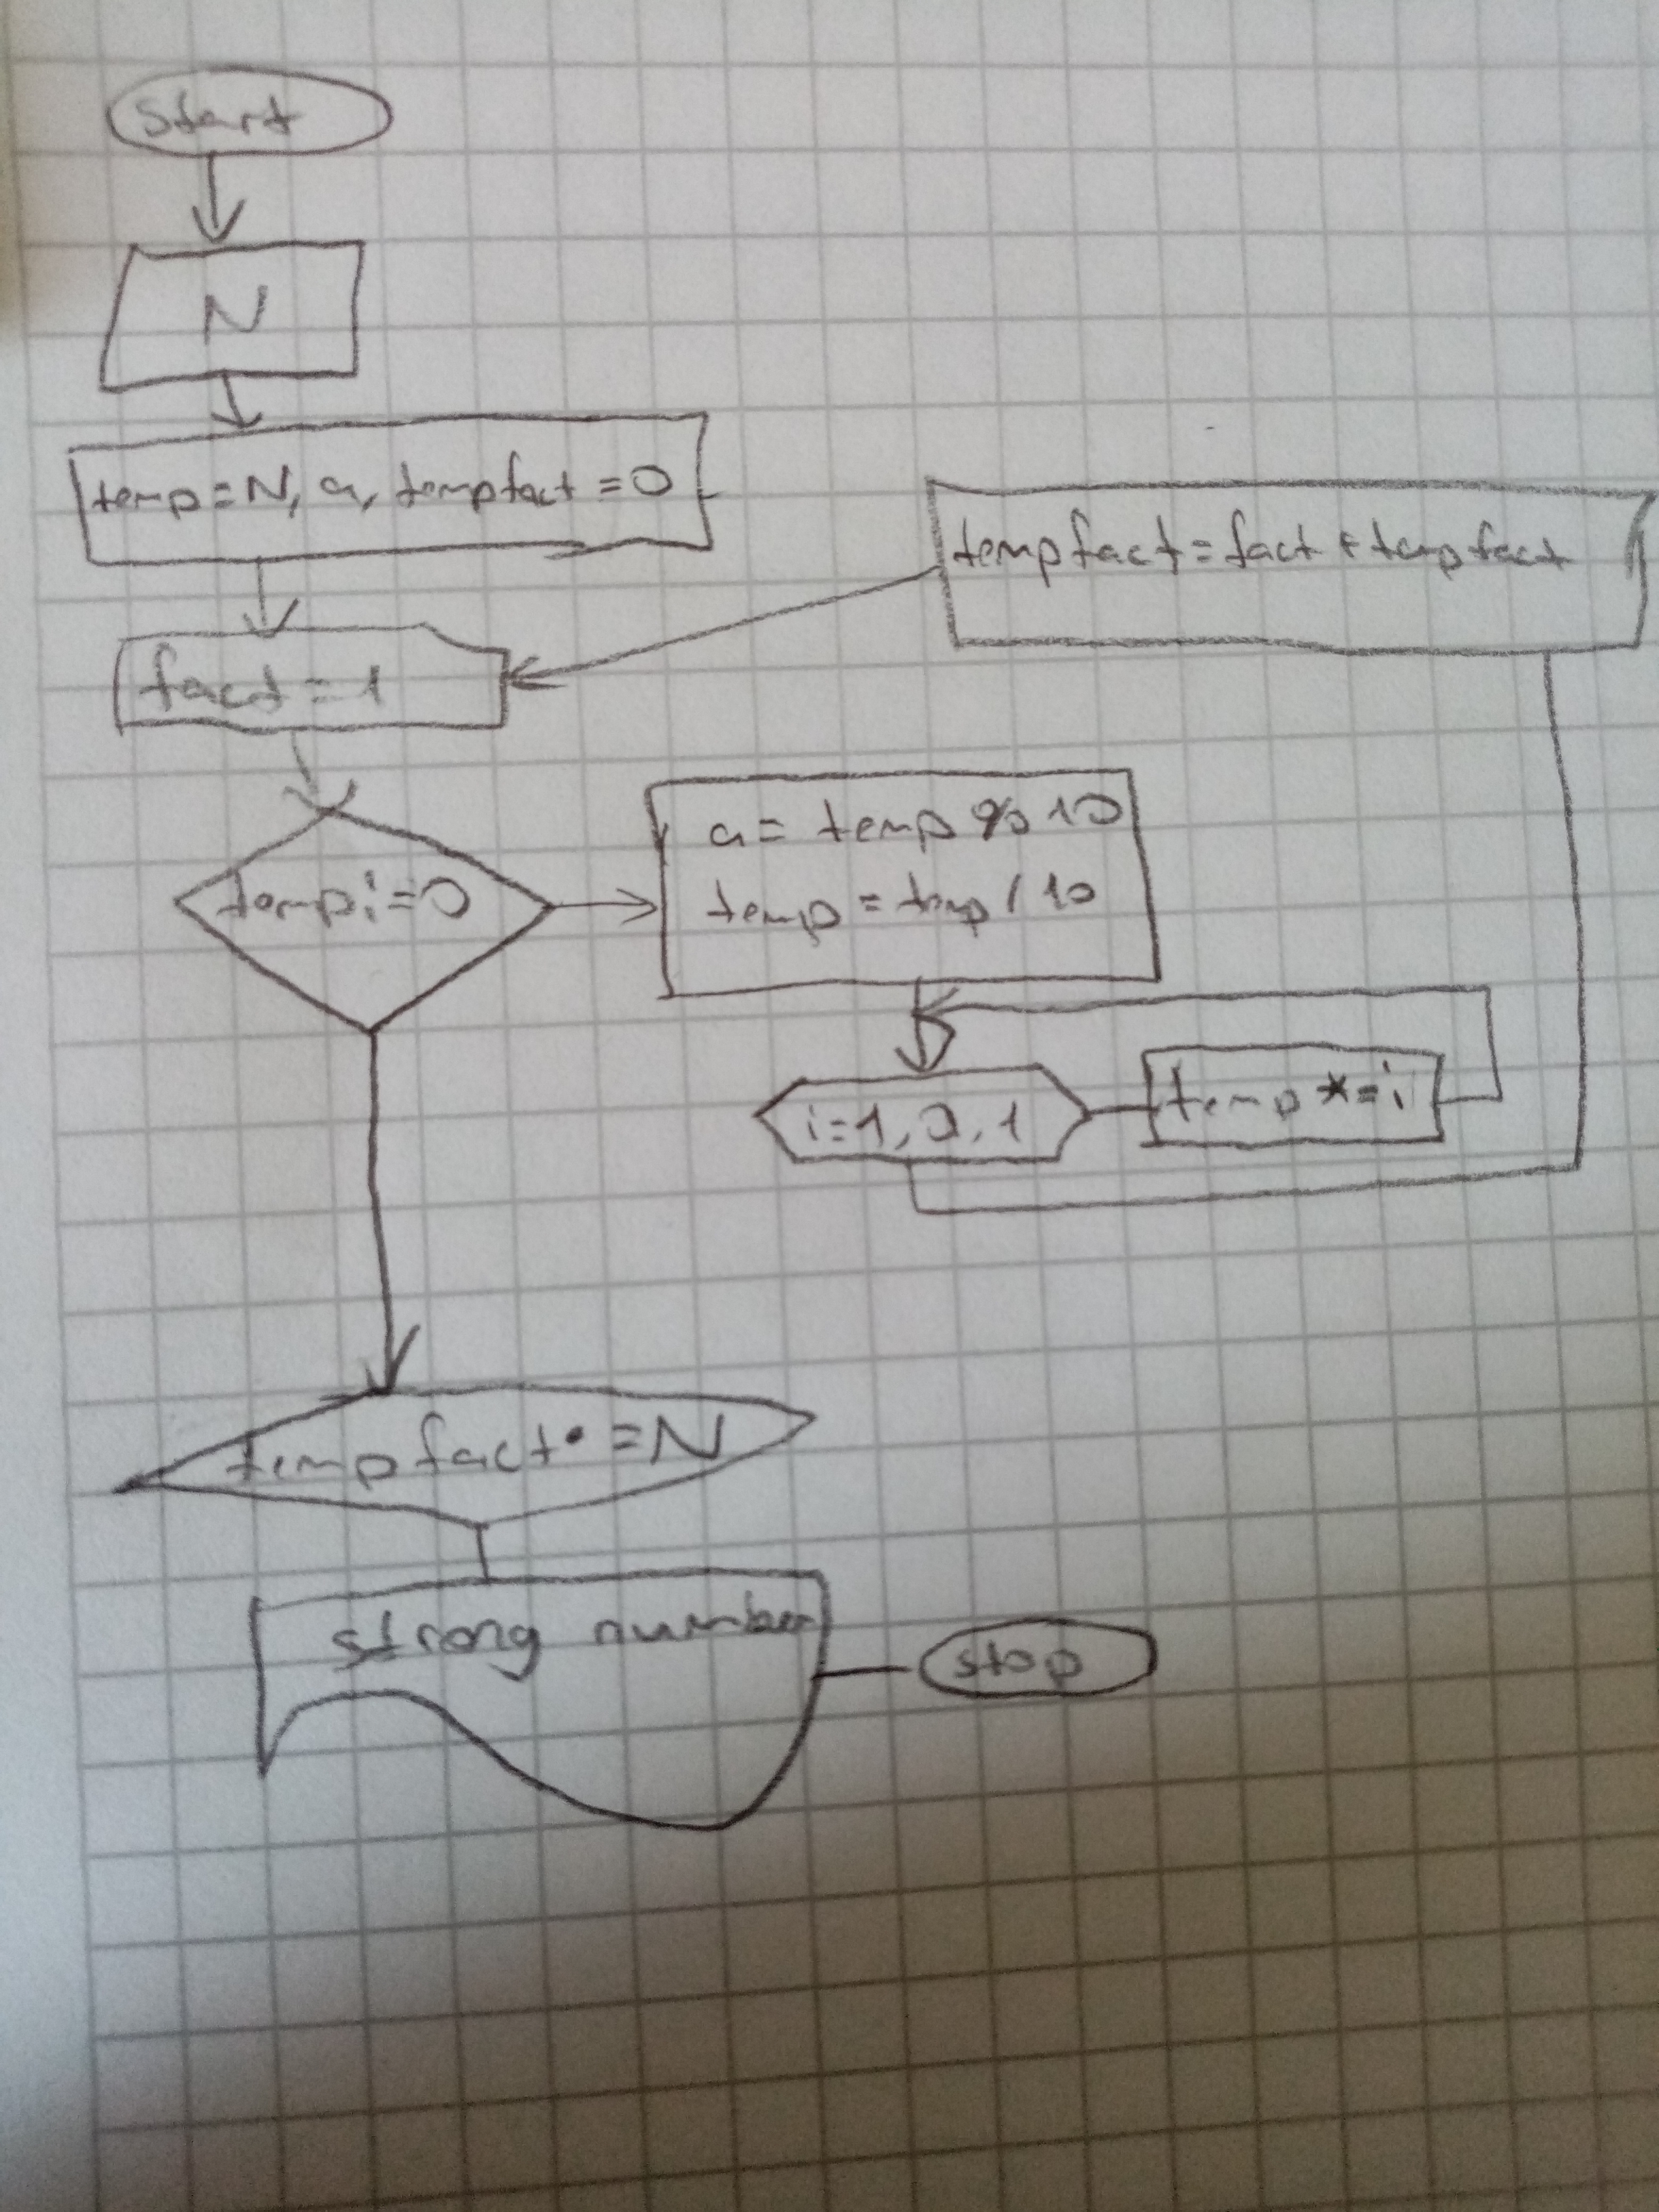 start
N
temp=N, a, tempfact=0
tempfact=fact+tempfact
fact=1
temp!=0
a= temp%10
temp=temp/10
i=1,a,1
temp*=i
tempfact =N
strong number
stop